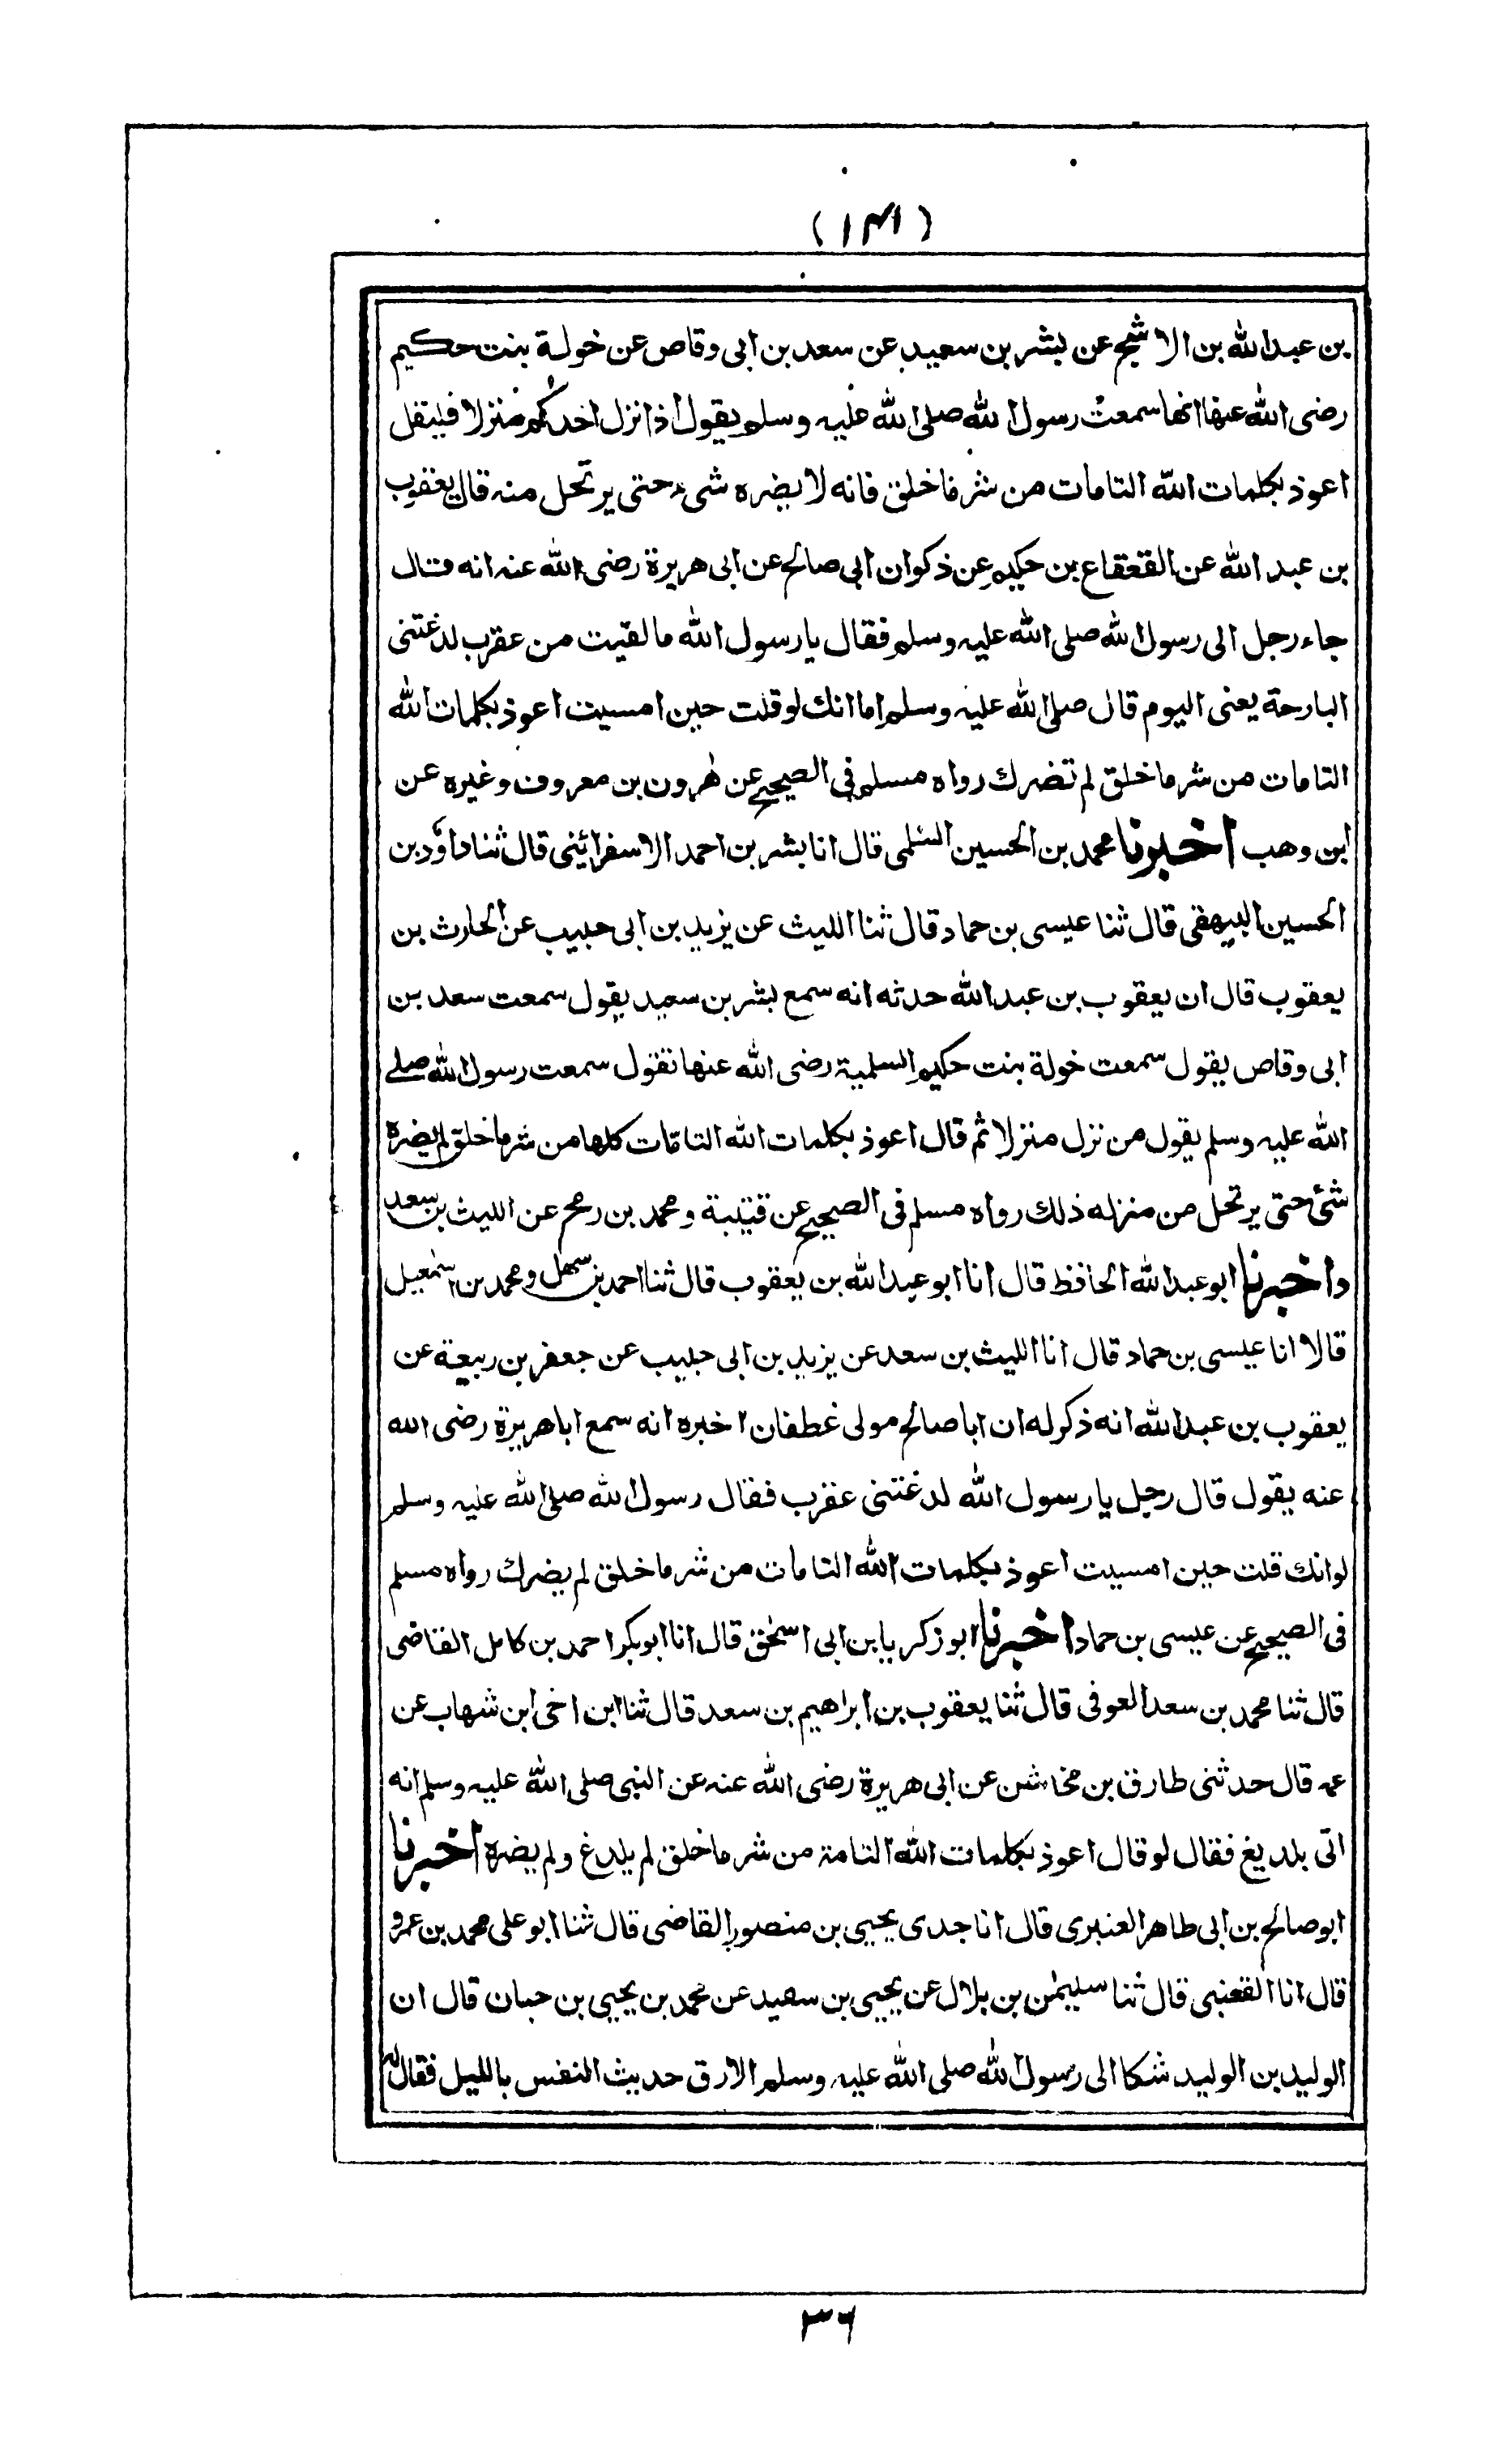 (١٣١)
بن عبد الله بن الاشج عن بشر بن سعيد عن سعد بن ابى وقاص عن خولة بنت حكيم
رضى الله عنها انها سمعت رسول الله صلى الله عليه وسلم يقول اذا نزل احدكم منزلا فليقل
اعوذ بكلمات الله التامات من شر ما خلق فانه لا يضره شىء حتى يرتحل منه قال يعقوب
بن عبد الله عن القعقاع بن حكيم عن ذكوان ابى صالح عن ابى هريرة رضى الله عنه انه قال
جاء رجل الى رسول الله صلى الله عليه وسلم فقال يا رسول الله ما لقيت من عقرب لدغتنى
البارحة يعنى اليوم قال صلى الله عليه وسلم اما انك لو قلت حين امسيت اعوذ بكلمات الله
التامات من شر ما خلق لم تضرك رواه مسلم فى الصحيح عن هٰرون بن معروف وغيره عن
ابن وهب اخبرنا محمد بن الحسين السلمى قال انا بشر بن احمد الاسفرائينى قال ثنا داؤد بن
الحسين البيهقى قال ثنا عيسى بن حماد قال ثنا الليث عن يزيد بن ابى حبيب عن الحارث بن
يعقوب قال ان يعقوب بن عبد الله حدثه انه سمع بشر بن سعيد يقول سمعت سعد بن
ابى وقاص يقول سمعت خولة بنت حكيم السلمية رضى الله عنها تقول سمعت رسول الله صلے
الله عليه وسلم يقول من نزل منزلا ثم قال اعوذ بكلمات الله التامّات كلها من شر ما خلق لم يضره
شئ حتى يرتحل من منزله ذلك رواه مسلم فى الصحيح عن قتيبة ومحمد بن رمح عن الليث بن سعد
واخبرنا ابو عبد الله الحافظ قال انا ابو عبد الله بن يعقوب قال ثنا احمد بن سهل ومحمد بن اسمٰعيل
قالا انا عيسى بن حماد قال انا الليث بن سعد عن يزيد بن ابى حبيب عن جعفر بن ربيعة عن
يعقوب بن عبد الله انه ذكر له ان ابا صالح مولى غطفان اخبره انه سمع ابا هريرة رضى الله
عنه يقول قال رجل يا رسول الله لدغتنى عقرب فقال رسول الله صلى الله عليه وسلم
لو انك قلت حين امسيت اعوذ بكلمات الله التامات من شر ما خلق لم يضرك رواه مسلم
فى الصحيح عن عيسى بن حماد اخبرنا ابو زكريا بن ابى اسحٰق قال انا ابو بكر احمد بن كامل القاضى
قال ثنا محمد بن سعد العوفى قال ثنا يعقوب بن ابراهيم بن سعد قال ثنا ابن اخى ابن شهاب عن
عمه قال حدثنى طارق بن مخاشن عن ابى هريرة رضى الله عنه عن النبى صلى الله عليه وسلم انه
اتى بلديغ فقال لو قال اعوذ بكلمات الله التامة من شر ما خلق لم يلدغ ولم يضره اخبرنا
ابو صالح بن ابى طاهر العنبرى قال انا جدى يحيى بن منصور القاضى قال ثنا ابو على محمد بن عمرو
قال انا القعنبى قال ثنا سليمٰن بن بلال عن يحيى بن سعيد عن محمد بن يحيى بن حبان قال ان
الوليد بن الوليد شكا الى رسول الله صلى الله عليه وسلم الارق حديث النفس بالليل فقال له
٣٦